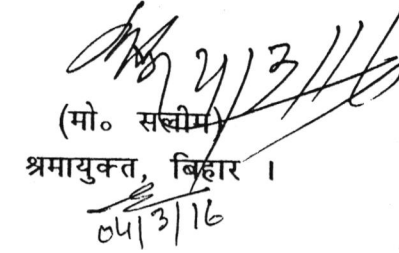 4/3/16
(मो० सलीम)
श्रमायुक्त, बिहार ।
04/3/16